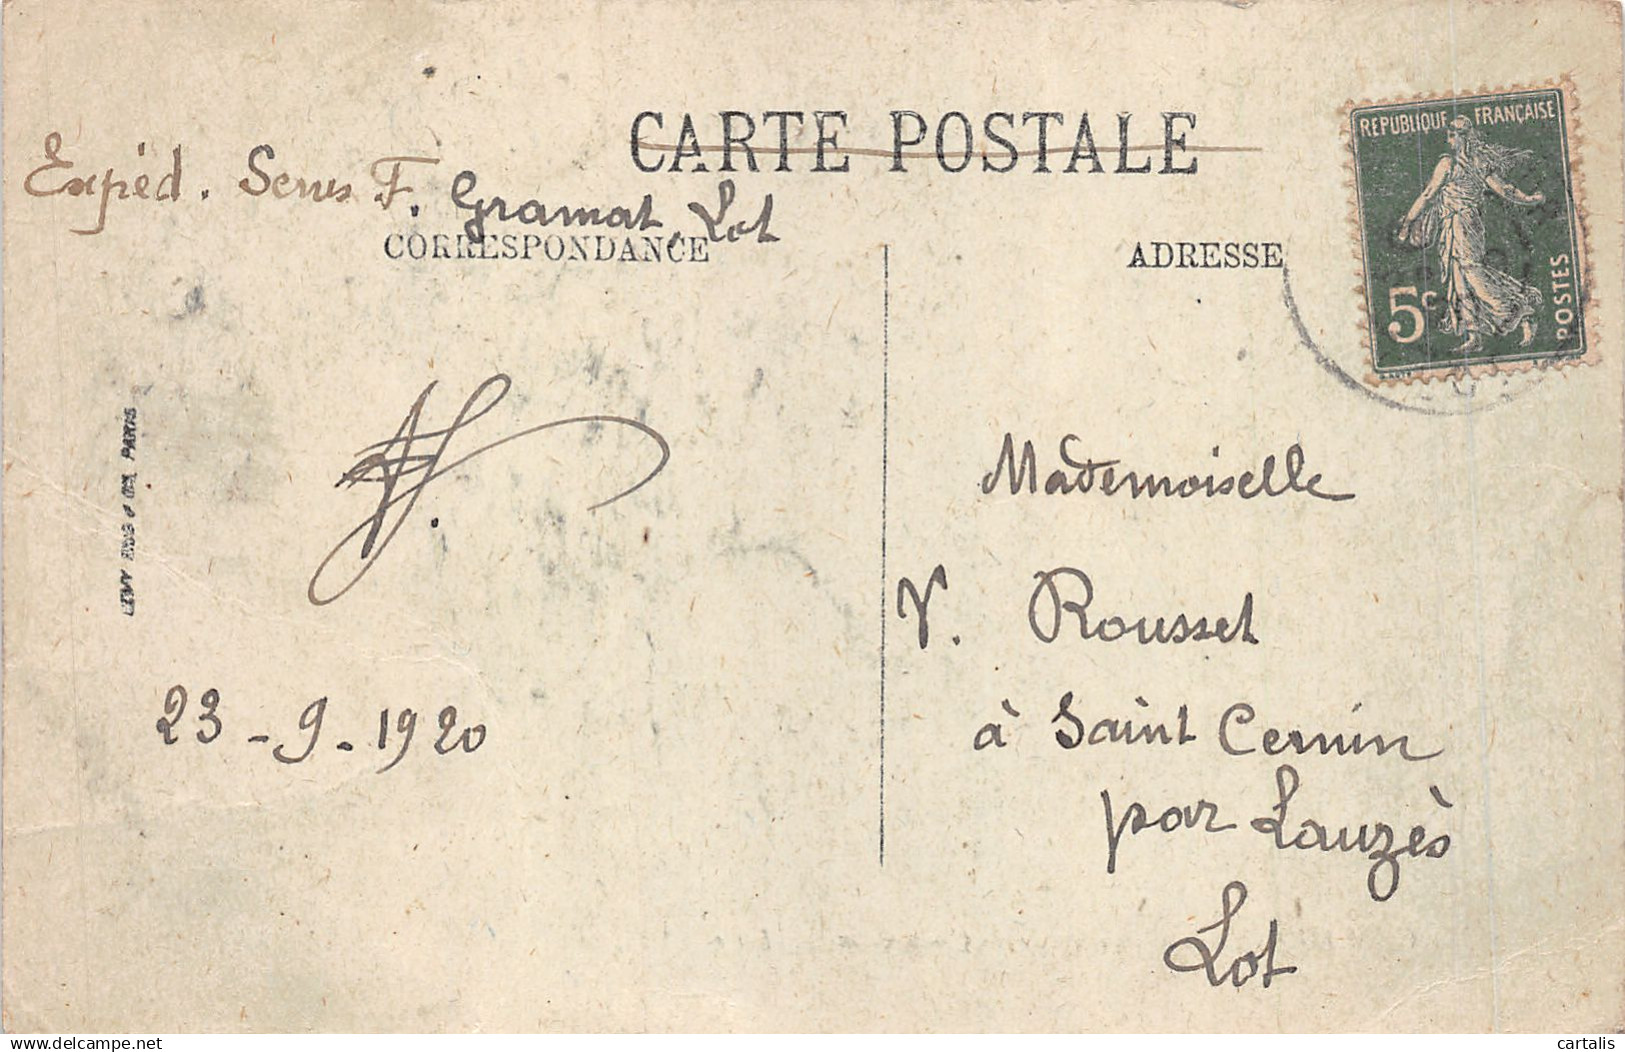 CARTE POSTALE
Expéd. Senus F. Gramat Lot
CORRESPONDANCE
ADRESSE
REPUBLIQUE FRANÇAISE
5c
POSTES
LEVY FILS & Cie, PARIS
Mademoiselle
V. Rousset
à Saint Cernin
par Lauzès
Lot
23-9.1920
delcampe.net
cartalis